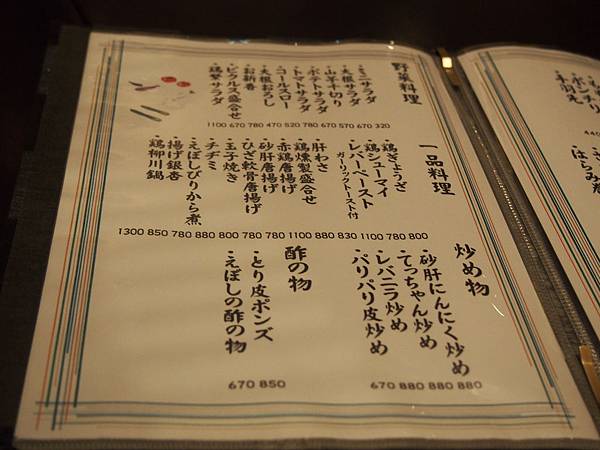 野菜料理
・ミニサラダ
・大根サラダ
・山芋千切り
・ポテトサラダ
・トマトサラダ
・コールスロー
・大根おろし
・お新香
・ピクルス盛合せ
・鶏繁サラダ
1100 670 780 470 520 780 670 570 670 320
一品料理
・鶏ぎょうざ
・鶏シューマイ
・レバーペースト
ガーリックトースト付
・肝わさ
・鶏燻製盛合せ
・赤鶏唐揚げ
・砂肝唐揚げ
・ひざ軟骨唐揚げ
・玉子焼き
・チヂミ
・えぼしぴりから煮
・揚げ銀杏
・鶏柳川鍋
1300 850 780 880 800 780 780 1100 880 830 1100 780 800
炒め物
・砂肝にんにく炒め
・てっちゃん炒め
・レバニラ炒め
・パリパリ皮炒め
670 880 880 880
酢の物
・とり皮ポンズ
・えぼしの酢の物
670 850
・ボンチリ
・手羽先
440
・はらみ